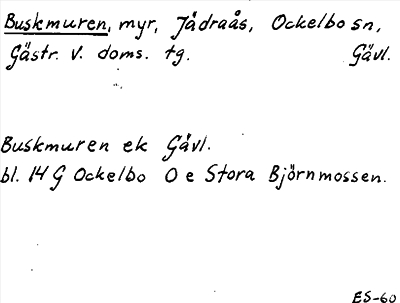 Buskmuren, myr, Jädraås, Ockelbo sn,
Gästr. V. doms. tg. Gävl.
Buskmuren ek Gävl.
bl. 14 G Ockelbo O e Stora Björnmossen.
ES-60